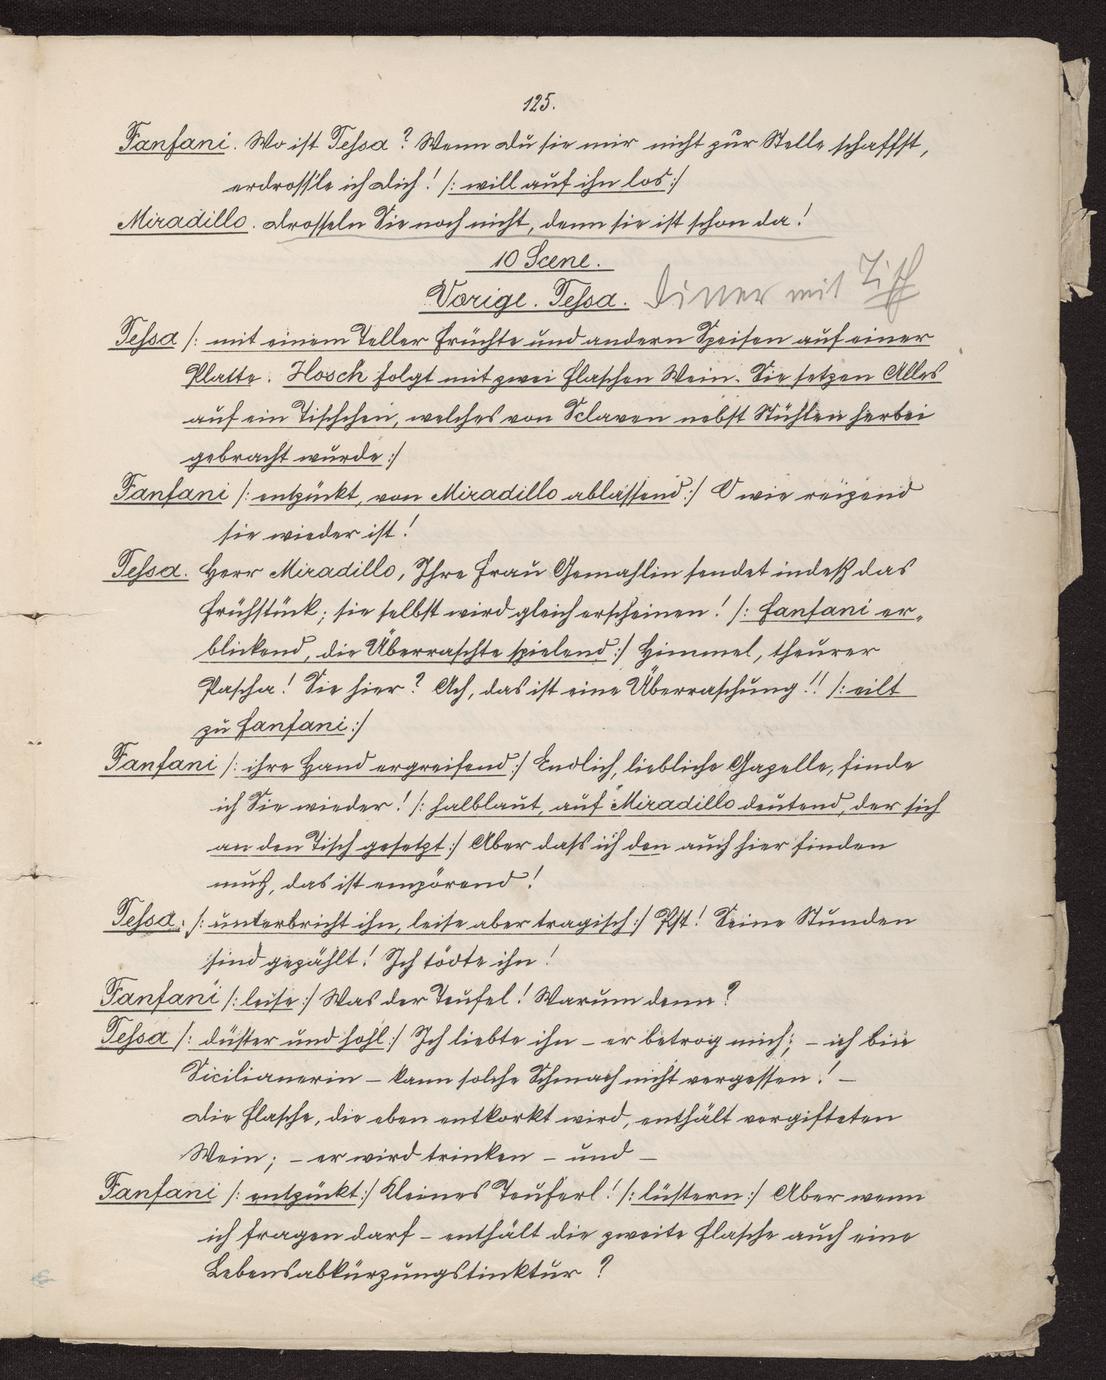 125.
Fanfani. Wo ist Tessa? Wenn du sie mir nicht zur Stelle schaffst,
erdross'le ich dich! /: will auf ihn los :/
Miradillo. Drosseln Sie noch nicht, denn sie ist schon da!
10 Scene.
Vorige. Tessa. Diener mit Tisch
Tessa /: mit einem Teller Früchte und andern Speisen auf einer
Platte. Hosch folgt mit zwei Flaschen Wein. Sie setzen Alles
auf ein Tischchen, welches von Sclaven nebst Stühlen herbei
gebracht wurde :/
Fanfani /: entzückt, von Miradillo ablassend :/ O wie reizend
sie wieder ist!
Tessa. Herr Miradillo, Ihre Frau Gemahlin sendet indeß das
Frühstück; sie selbst wird gleich erscheinen! /: Fanfani er-
blickend, die Überraschte spielend :/ Himmel, theurer
Pascha! Sie hier? Ach, das ist eine Überraschung!! /: eilt
zu Fanfani :/
Fanfani /: ihre Hand ergreifend :/ Endlich, liebliche Gazelle, finde
ich Sie wieder! /: halblaut, auf Miradillo deutend, der sich
an den Tisch gesetzt :/ Aber dass ich den auch hier finden
muß, das ist empörend!
Tessa. /: unterbricht ihn, leise aber tragisch :/ Pst! Seine Stunden
sind gezählt! Ich tödte ihn!
Fanfani /: leise :/ Was der Teufel! Warum denn?
Tessa /: düster und hohl :/ Ich liebte ihn – er betrog mich; – ich bin
Sicilianerin – kann solche Schmach nicht vergessen! –
Die Flasche, die eben entkorkt wird, enthält vergifteten
Wein; – er wird trinken – und –
Fanfani /: entzückt :/ Kleines Teuferl! /: lüstern :/ Aber wenn
ich fragen darf – enthält die zweite Flasche auch eine
Lebensabkürzungstinktur?